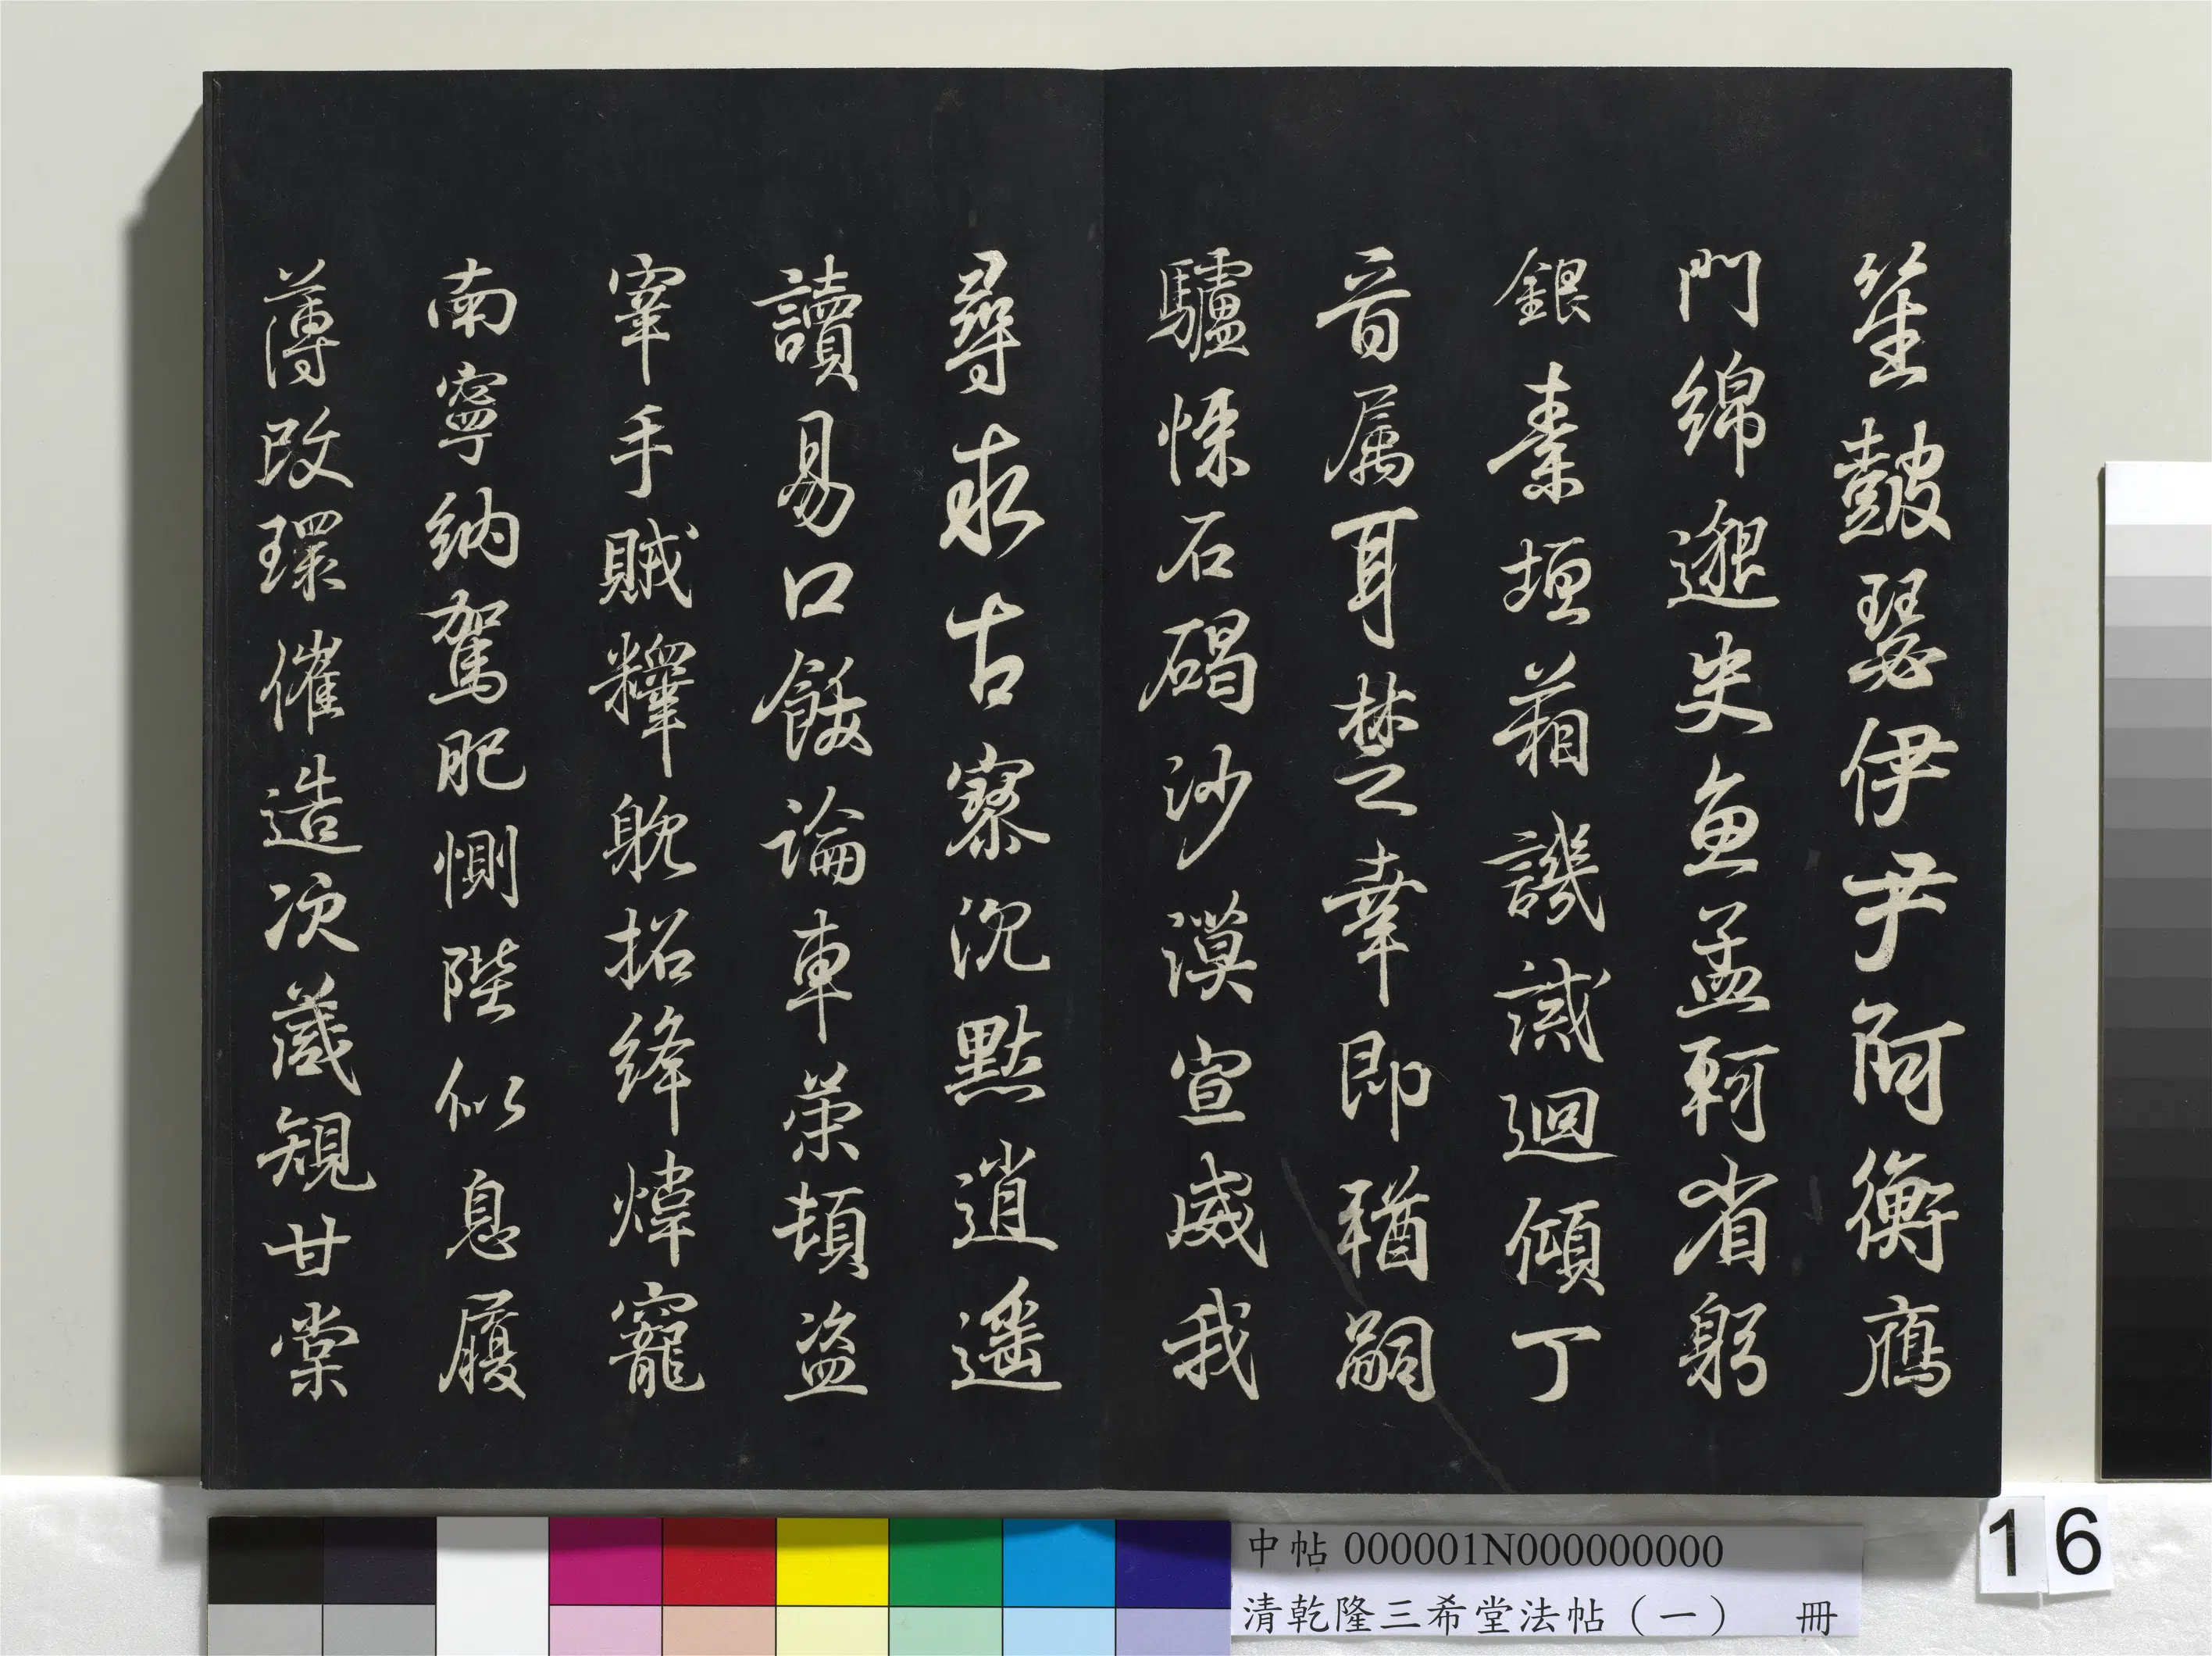 笙鼓瑟伊尹阿衡鴈
門綿邈史魚孟軻省躬
銀素垣葙譏誡迴傾丁
音属耳楚幸即猶嗣
驢悚石碣沙漠宣威我
尋求古寮沉默逍遥
讀易口飫論車荣頓盗
宰手賊糧躭招絳煒寵
南寧納駕肥惻陛似息履
薄改環催造次葴䂓甘棠
中帖 000001N000000000
清乾隆三希堂法帖（一） 冊
16